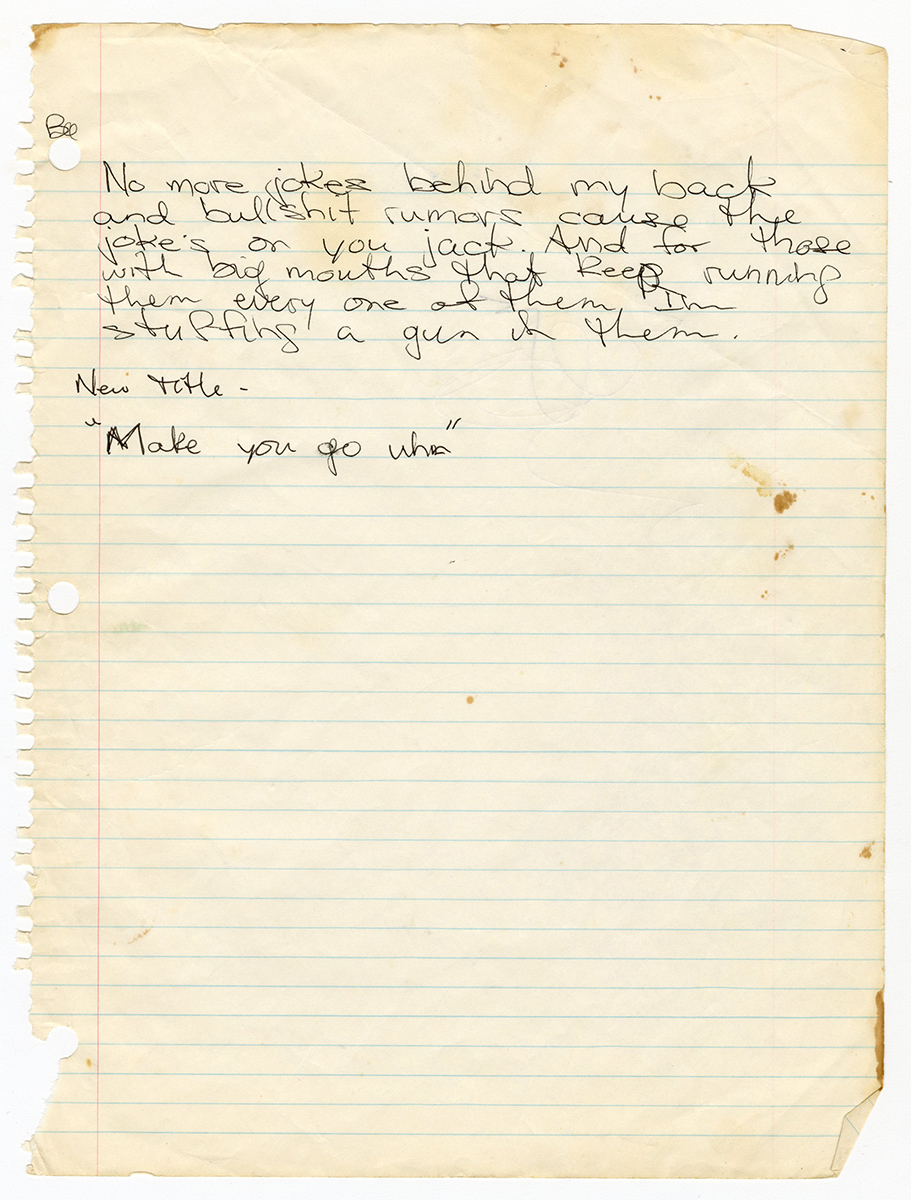 Bee
No more jokes behind my back
and bullshit rumors cause the
joke's on you jack. And for those
with big mouths that keep running
them every one of them I'm
stuffing a gun in them.
New title -
"Make you go